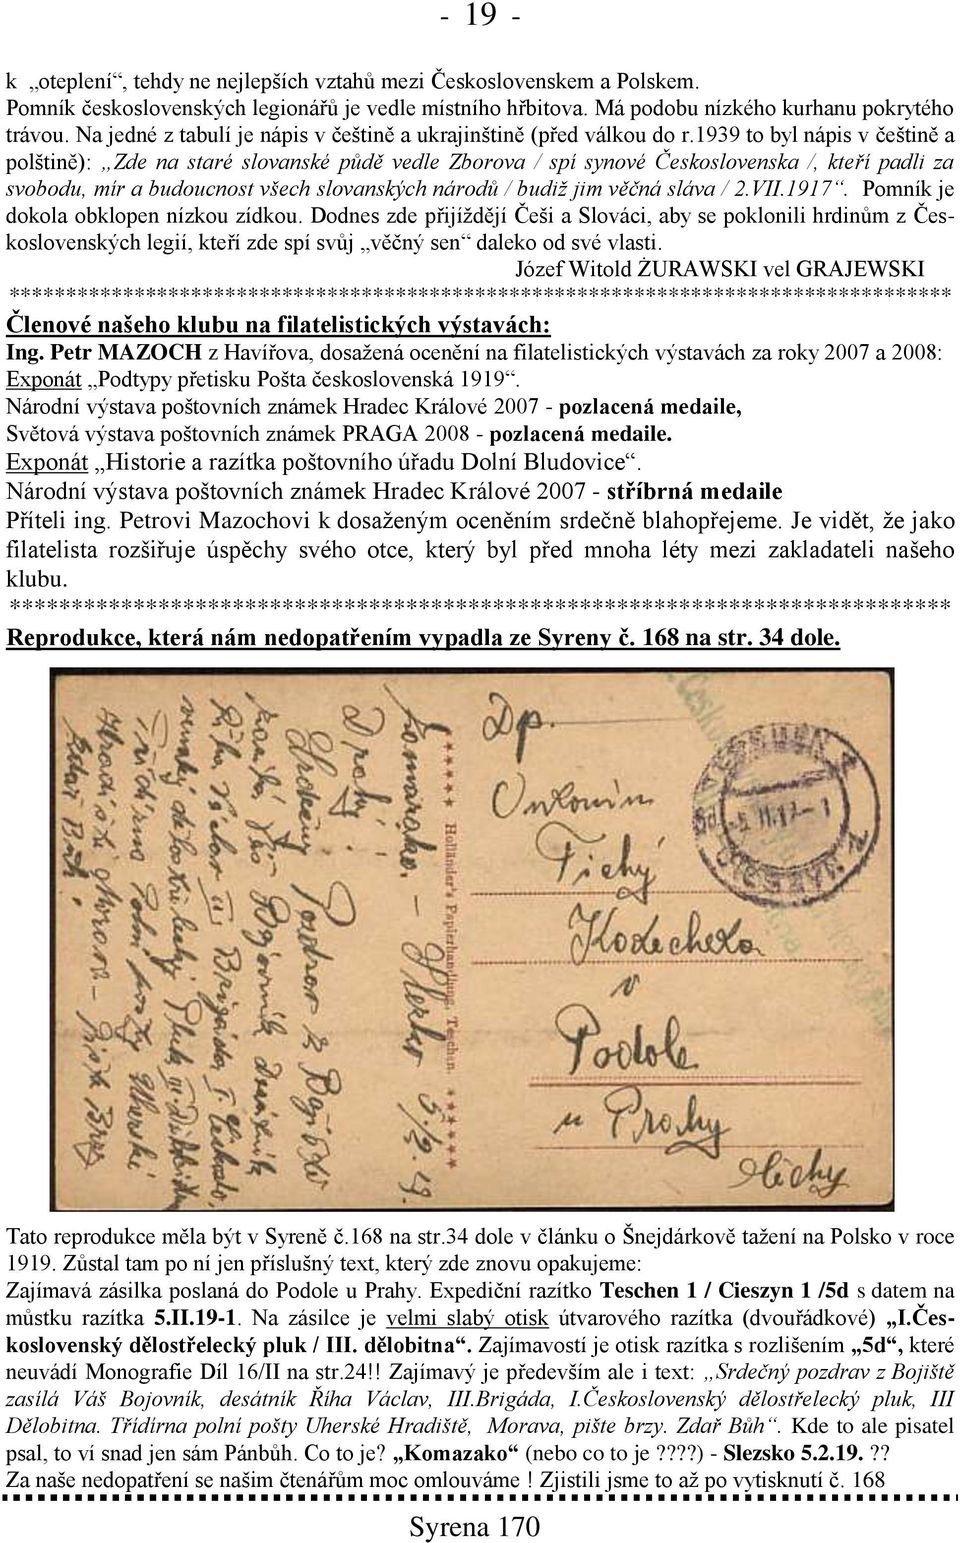 - 19 -
k „oteplení“, tehdy ne nejlepších vztahů mezi Československem a Polskem.
Pomník československých legionářů je vedle místního hřbitova. Má podobu nízkého kurhanu pokrytého
trávou. Na jedné z tabulí je nápis v češtině a ukrajinštině (před válkou do r.1939 to byl nápis v češtině a
polštině): „Zde na staré slovanské půdě vedle Zborova / spí synové Československa /, kteří padli za
svobodu, mír a budoucnost všech slovanských národů / budiž jim věčná sláva / 2.VII.1917“. Pomník je
dokola obklopen nízkou zídkou. Dodnes zde přijíždějí Češi a Slováci, aby se poklonili hrdinům z Čes-
koslovenských legií, kteří zde spí svůj „věčný sen“ daleko od své vlasti.
Józef Witold ŻURAWSKI vel GRAJEWSKI
************************************************************************************
Členové našeho klubu na filatelistických výstavách:
Ing. Petr MAZOCH z Havířova, dosažená ocenění na filatelistických výstavách za roky 2007 a 2008:
Exponát „Podtypy přetisku Pošta československá 1919“.
Národní výstava poštovních známek Hradec Králové 2007 - pozlacená medaile,
Světová výstava poštovních známek PRAGA 2008 - pozlacená medaile.
Exponát „Historie a razítka poštovního úřadu Dolní Bludovice“.
Národní výstava poštovních známek Hradec Králové 2007 - stříbrná medaile
Příteli ing. Petrovi Mazochovi k dosaženým oceněním srdečně blahopřejeme. Je vidět, že jako
filatelista rozšiřuje úspěchy svého otce, který byl před mnoha léty mezi zakladateli našeho
klubu.
****************************************************************************
Reprodukce, která nám nedopatřením vypadla ze Syreny č. 168 na str. 34 dole.
Dp.
Tichý
v
Podole
u Prahy
Holländer's Papierhandlung, Teschen.
5/2 19.
Tato reprodukce měla být v Syreně č.168 na str.34 dole v článku o Šnejdárkově tažení na Polsko v roce
1919. Zůstal tam po ní jen příslušný text, který zde znovu opakujeme:
Zajímavá zásilka poslaná do Podole u Prahy. Expediční razítko Teschen 1 / Cieszyn 1 /5d s datem na
můstku razítka 5.II.19-1. Na zásilce je velmi slabý otisk útvarového razítka (dvouřádkové) „I.Čes-
koslovenský dělostřelecký pluk / III. dělobitna“. Zajímavostí je otisk razítka s rozlišením „5d“, které
neuvádí Monografie Díl 16/II na str.24!! Zajímavý je především ale i text: „Srdečný pozdrav z Bojiště
zasílá Váš Bojovník, desátník Říha Václav, III.Brigáda, I.Československý dělostřelecký pluk, III
Dělobitna. Třídírna polní pošty Uherské Hradiště, Morava, pište brzy. Zdař Bůh“. Kde to ale pisatel
psal, to ví snad jen sám Pánbůh. Co to je? „Komazako“ (nebo co to je ????) - Slezsko 5.2.19. ??
Za naše nedopatření se našim čtenářům moc omlouváme ! Zjistili jsme to až po vytisknutí č. 168
Syrena 170